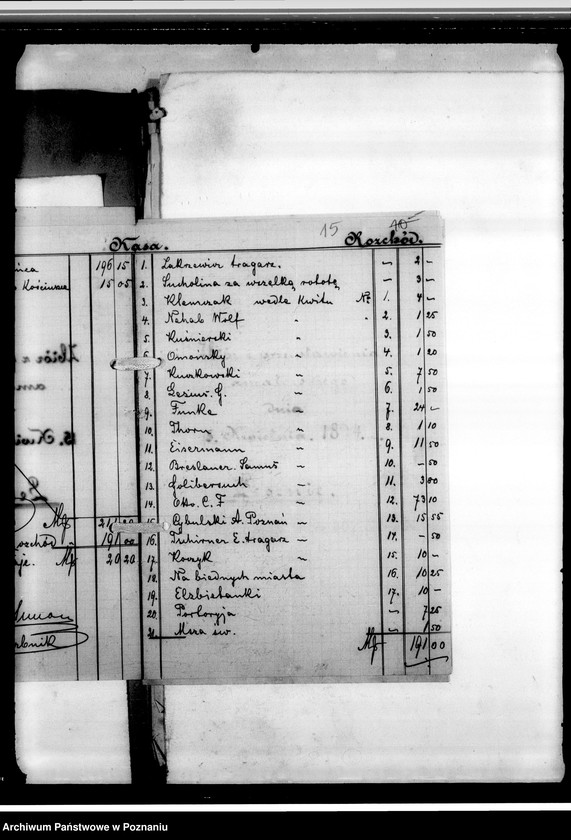 15 40
Kasa. Rozchód.
196 15
Kościuszce 15 05
Mk 211 20
rozchód 191 00
Mk 20 20
1. Lakrzewicz tragarz. — 2 —
2. Sucholina za wszelką robotę — 3 —
3. Klemczak wedle Kwitu № 1. 4 —
4. Nehab Wolf " 2. 1 25
5. Kuśnierski " 3. 1 50
6. Omański " 4. 1 20
7. Kurkowski " 5. 7 50
8. G. " 6. 1 50
9. Funke " 7. 24 —
10. Thorn " 8. 1 10
11. Eisermann " 9. 11 50
12. Breslauer Samuś " 10. — 50
13. " 11. 3 80
14. Otto C. F " 12. 73 10
15. Cybulski A. Poznań " 13. 15 55
16. Tschirner E. tragarz " 14. — 50
17. Koczyk " 15. 10 —
18. Na biednych miasta 16. 10 25
19. Elżbietanki 17. 10 —
20. Portoryja — 7 25
21. Msza św. — 1 50
Mk 191 00